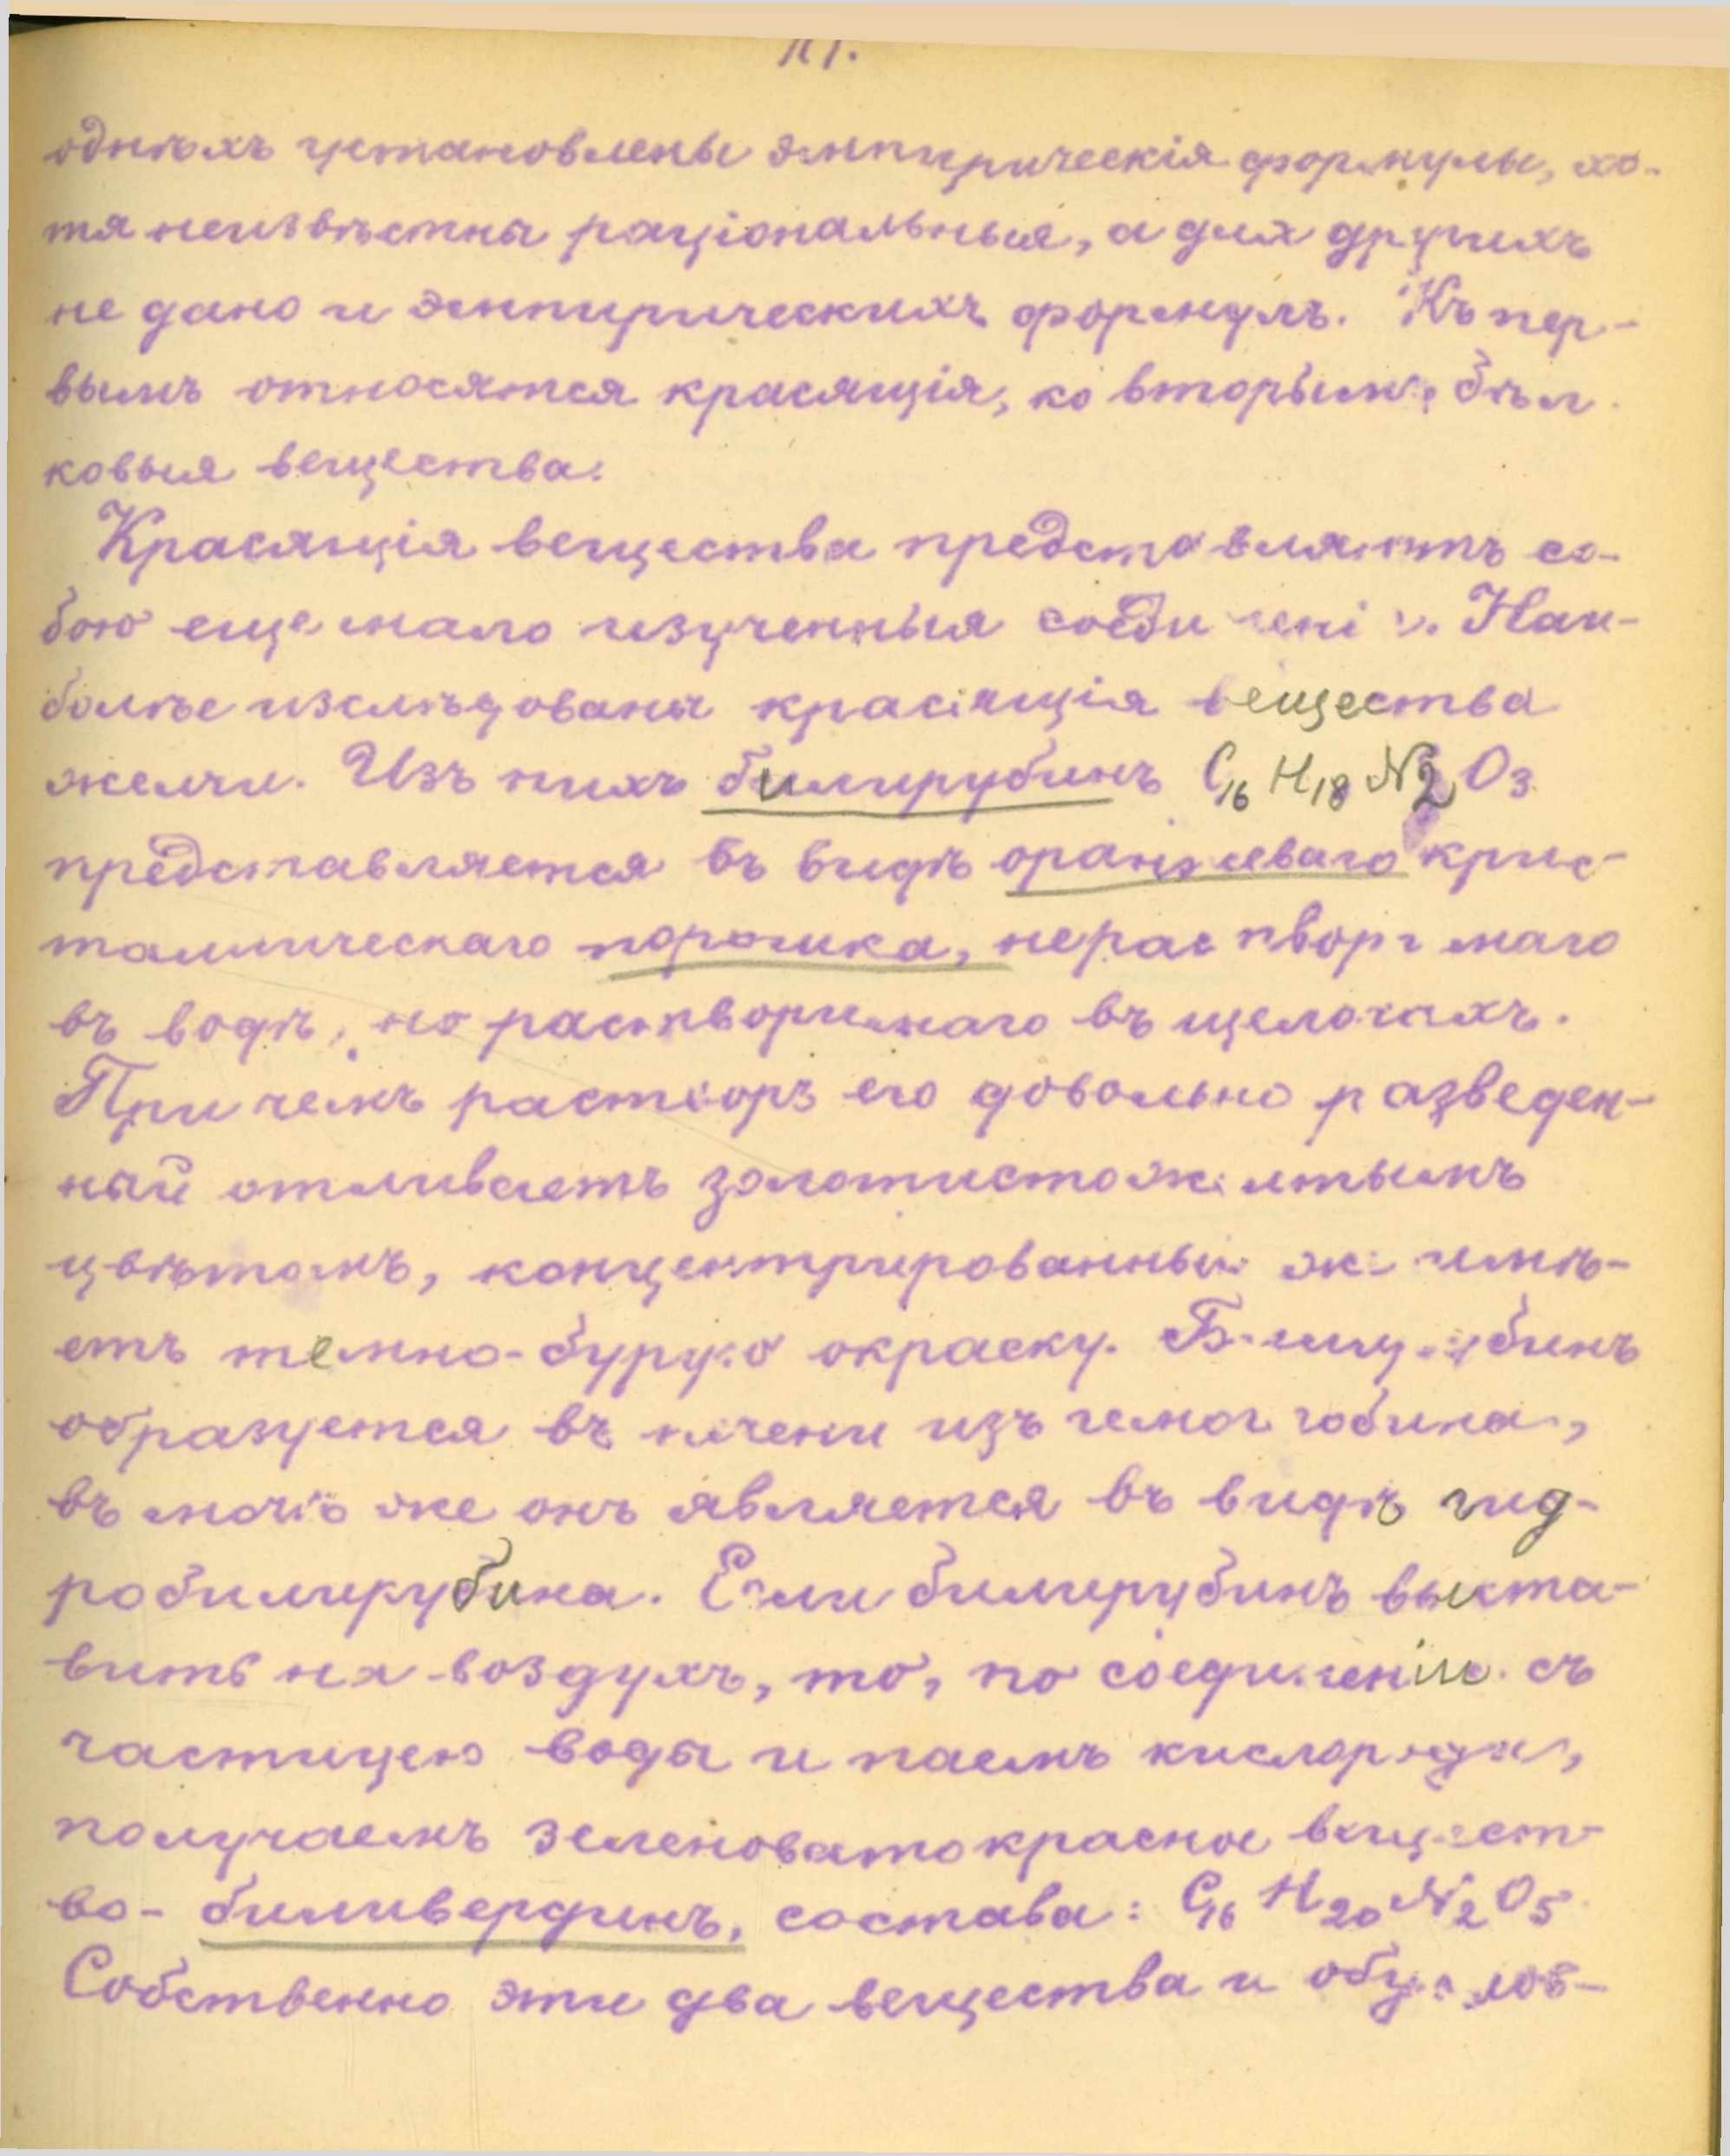 однѣхъ установлены эмпирическія формулы, хо-
тя неизвѣстны раціональныя, а для другихъ
не дано и эмпирическихъ формулъ. Къ пер-
вымъ относятся красящія, ко вторымъ бѣл
ковыя вещества.
Красящія вещества представляютъ со-
бою еще мало изученныя соединенія. Наи-
болѣе изслѣдованы красящія вещества
желчи. Изъ нихъ билирубинъ C₁₆ H₁₈ N₂ O₃
представляется въ видѣ оранжеваго крис-
таллическаго порошка, нерастворимаго
въ водѣ, но растворимаго въ щелочахъ.
При чемъ растворъ его довольно разведен-
ный отливаетъ золотистожелтымъ
цвѣтомъ, концентрированный же имѣ-
етъ темно-бурую окраску. Билирубинъ
образуется въ печени изъ гемоглобина,
въ мочѣ же онъ является въ видѣ гид-
робилирубина. Если билирубинъ выста-
вить на воздухъ, то, по соединеніи съ
частицею воды и паемъ кислорода,
получаемъ зеленоватокрасное вещест-
во - биливердинъ, состава: C₁₆ H₂₀ N₂ O₅
Собственно эти два вещества и обуслов-